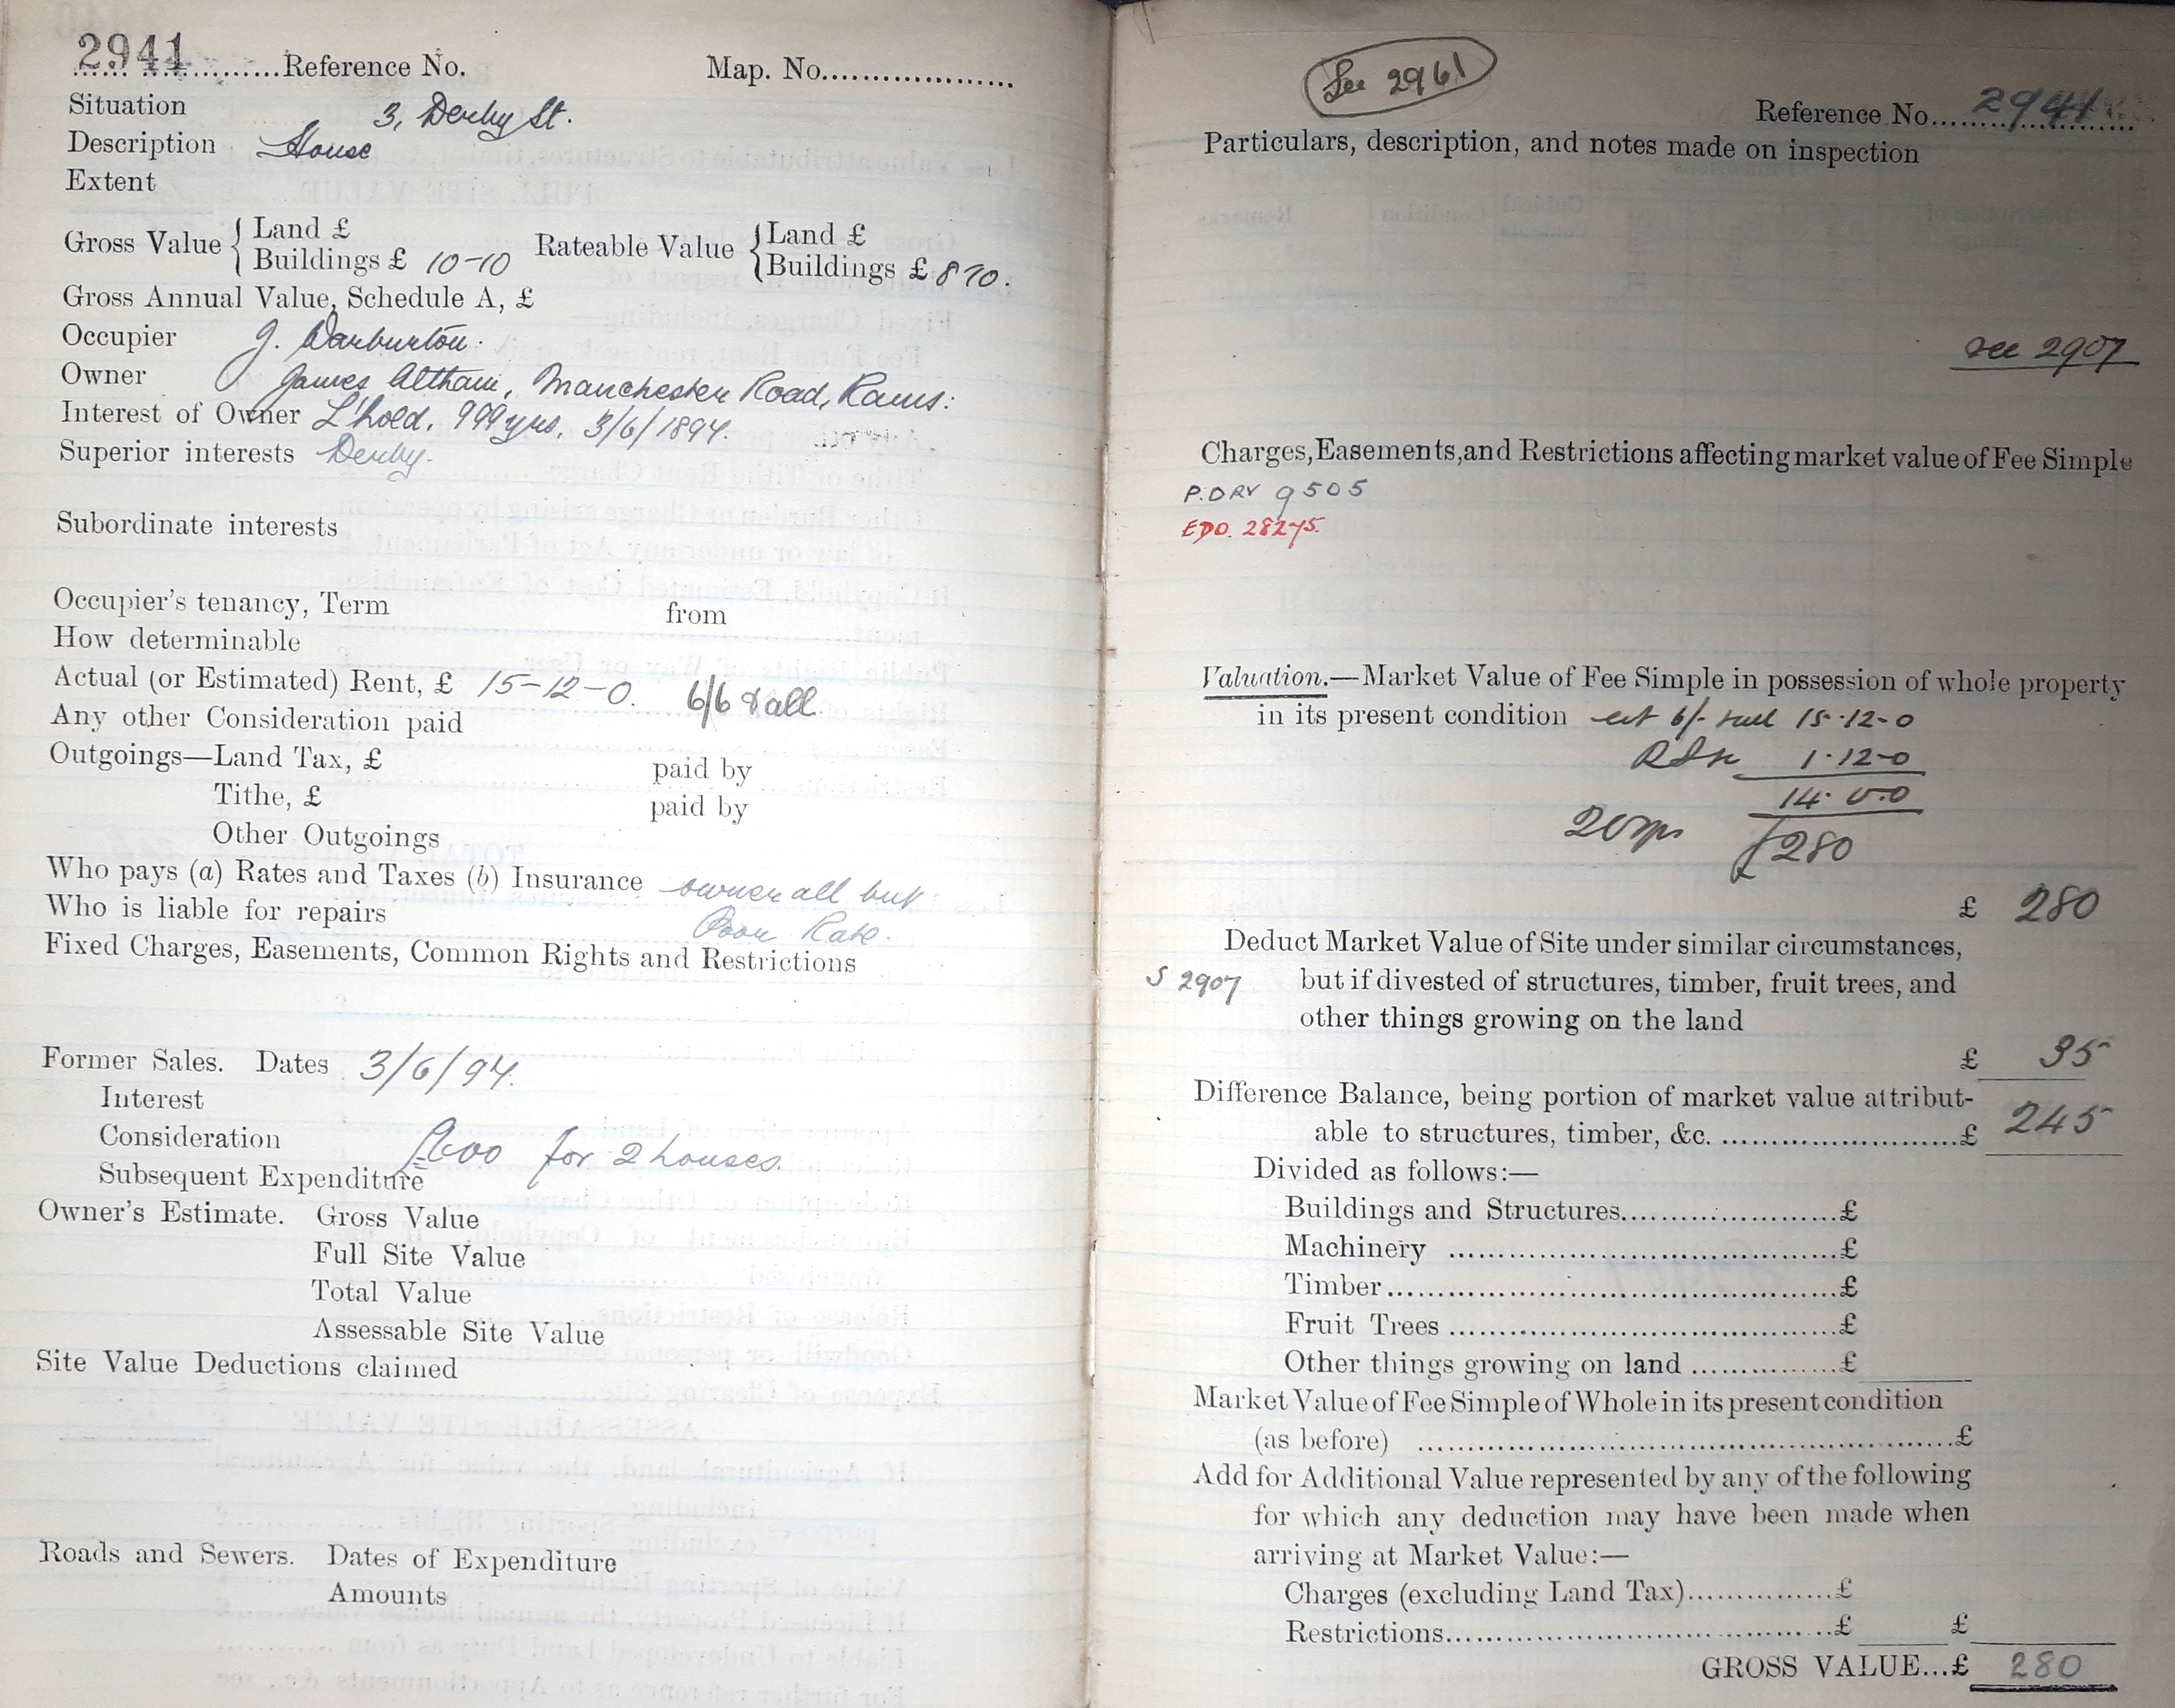 2941 Reference No. Map. No.
Situation 3, Derby St.
Description House
Extent
Gross Value { Land £ Rateable Value { Land £
Buildings £ 10-10 Buildings £ 8 10.
Gross Annual Value, Schedule A, £
Occupier J. Warburton.
Owner James Altham, Manchester Road, Rams:
Interest of Owner L'hold. 999 yrs. 3/6/1894.
Superior interests Derby.
Subordinate interests
Occupier's tenancy, Term from
How determinable
Actual (or Estimated) Rent, £ 15-12-0. 6/6 & all
Any other Consideration paid
Outgoings—Land Tax, £ paid by
Tithe, £ paid by
Other Outgoings
Who pays (a) Rates and Taxes (b) Insurance owner all but
Who is liable for repairs Poor Rate.
Fixed Charges, Easements, Common Rights and Restrictions
Former Sales. Dates 3/6/94.
Interest
Consideration for 2 houses.
Subsequent Expenditure
Owner's Estimate. Gross Value
Full Site Value
Total Value
Assessable Site Value
Site Value Deductions claimed
Roads and Sewers. Dates of Expenditure
Amounts
See 2961
Reference No. 2941
Particulars, description, and notes made on inspection
see 2907
Charges, Easements, and Restrictions affecting market value of Fee Simple
P.DRV 9505
EDO. 28275.
Valuation.—Market Value of Fee Simple in possession of whole property
in its present condition est 6/- 15-12-0
1-12-0
14.0.0
20 yrs £280
£ 280
Deduct Market Value of Site under similar circumstances,
S 2907 but if divested of structures, timber, fruit trees, and
other things growing on the land
£ 35
Difference Balance, being portion of market value attribut-
able to structures, timber, &c. £ 245
Divided as follows:—
Buildings and Structures £
Machinery £
Timber £
Fruit Trees £
Other things growing on land £
Market Value of Fee Simple of Whole in its present condition
(as before) £
Add for Additional Value represented by any of the following
for which any deduction may have been made when
arriving at Market Value:—
Charges (excluding Land Tax) £
Restrictions £ £
GROSS VALUE...£ 280